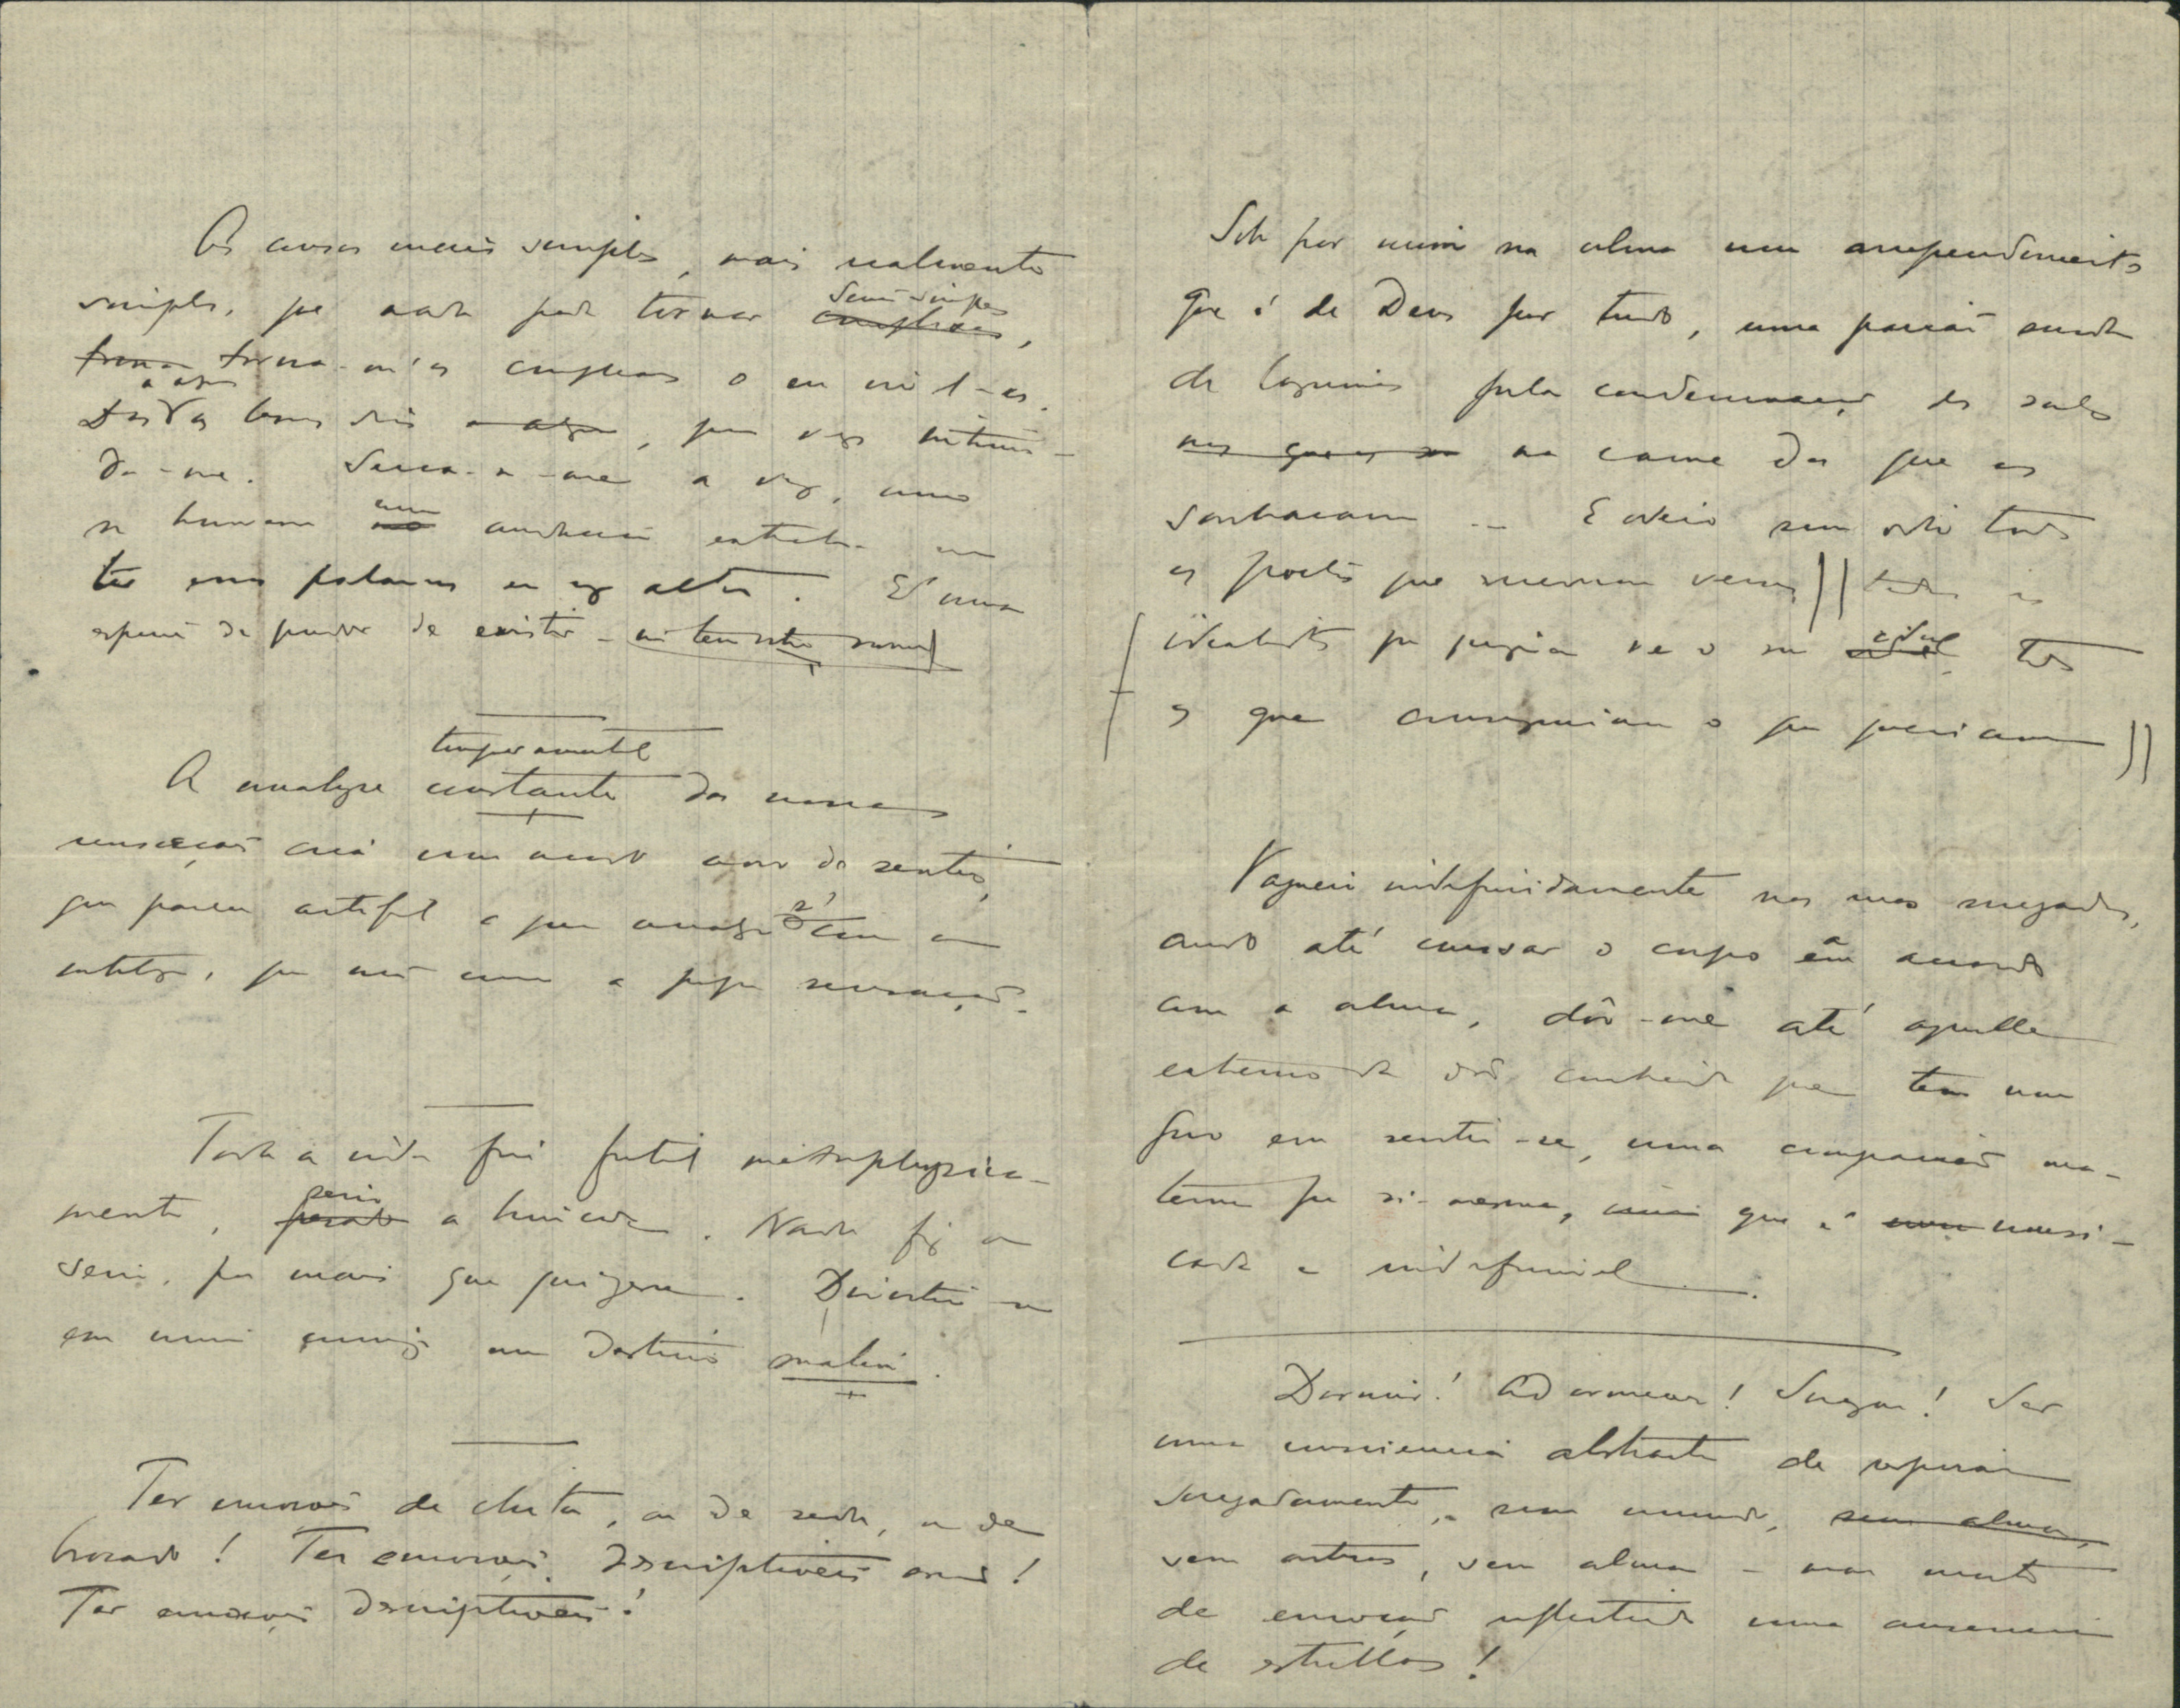 As cousas mais simples, mais realmente
simples, que nada pode tornar semi-simples,
torna-m'as complexas o eu vivel-as.
Dar a alguem os bons dias, por vezes intimi-
da-me. Secca-se-me a voz, como
se houvesse uma audacia extranha em
ter essas palavras em voz alta. É uma
especie de pudor de existir - não tem outro nome!
temperamental
A analyse constante das nossas
sensações cria um modo novo de sentir,
que parece artificial a quem analyse só com a
intelligencia, que não com a propria sensação.
Toda a vida fui futil metaphysica-
mente, serio a brincar. Nada fiz a
serio, por mais que quizesse. Divertiu-se
em mim commigo um Destino malin.
Ter emoções de chita, ou de seda, ou de
brocado! Ter emoções descriptiveis assim!
Ter emoções descriptiveis!
Sobe por mim na alma um arrependimento
que é de Deus por tudo, uma paixão surda
de lagrimas pela condemnação dos sonhos
na carne dos que os
sonharam... E odeio sem odio todos
os poetas que escreveram versos, todos os
idealistas que quizeram ver o seu ideal, todos
os que conseguiram o que queriam
Vagueio indefinidamente nas ruas socegadas,
ando até cansar o corpo em accordo
com a alma, dôe-me até aquelle
extremo da dor conhecida que tem um
gozo em sentir-se, uma compaixão ma-
terna por si-mesma, que é musi-
cada e indefinivel.
Dormir! Adormecer! Socegar! Ser
uma consciencia abstracta de respirar
socegadamente, sem mundo, sem alma,
sem astros, sem alma - mar morto
de emoção reflectindo uma ausencia
de estrellas!